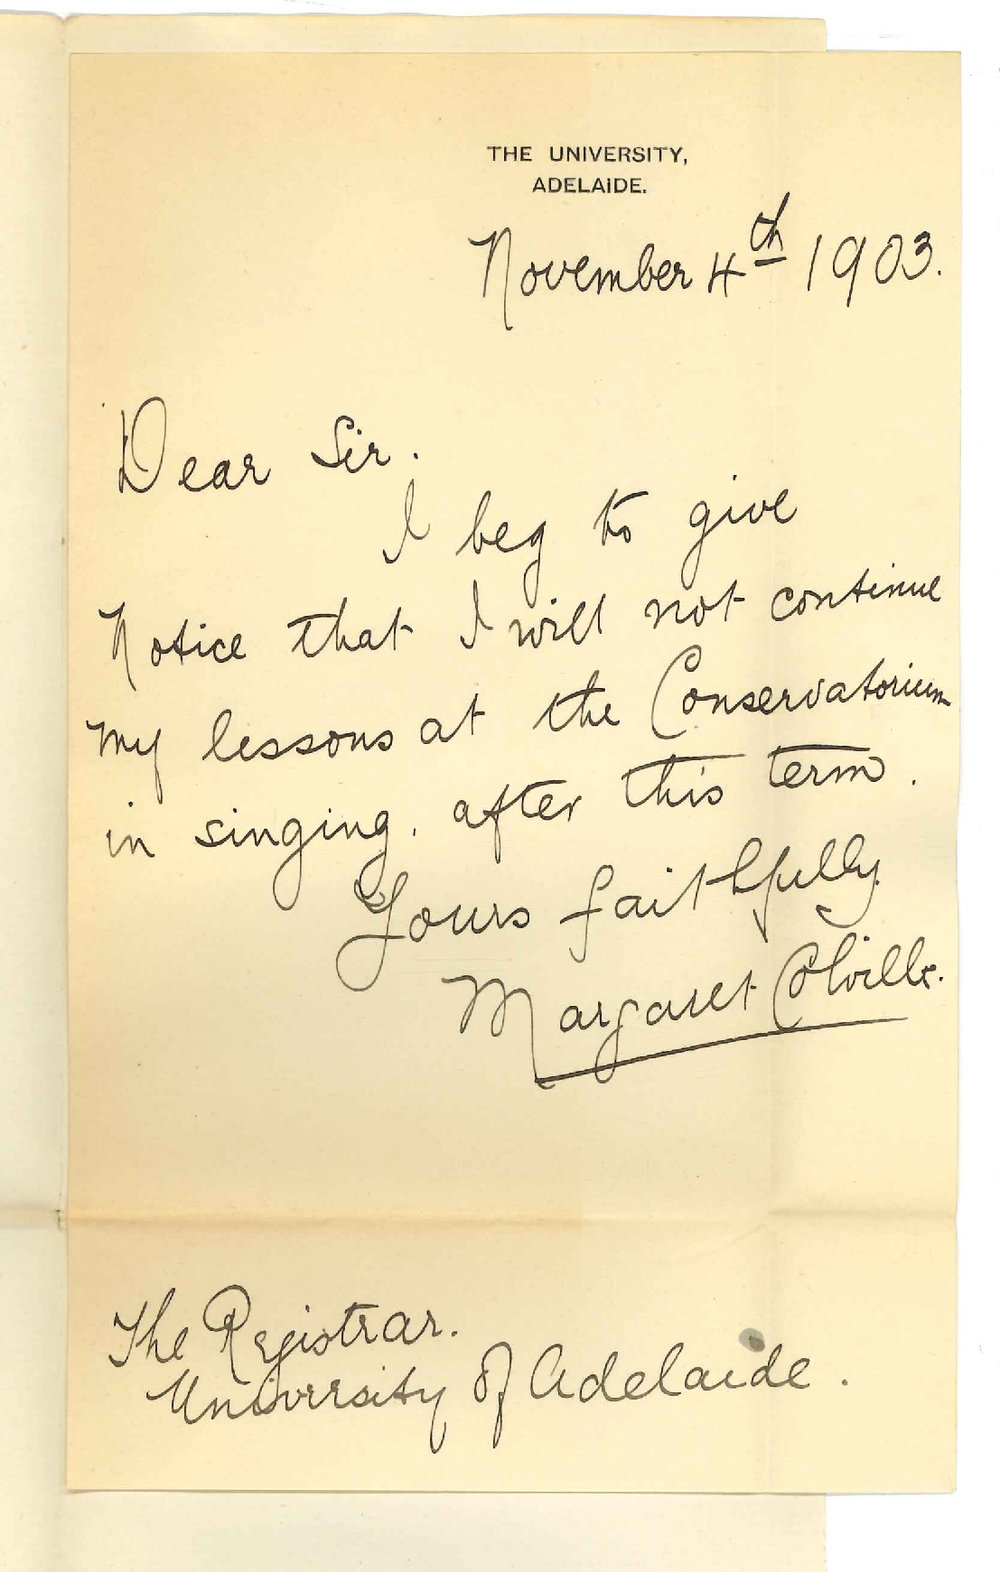 THE UNIVERSITY,
ADELAIDE.
November 4th 1903.
Dear Sir.
I beg to give
Notice that I will not continue
my lessons at the Conservatorium
in singing. after this term.
Yours faithfully
Margaret Colville.
The Registrar.
University of Adelaide.